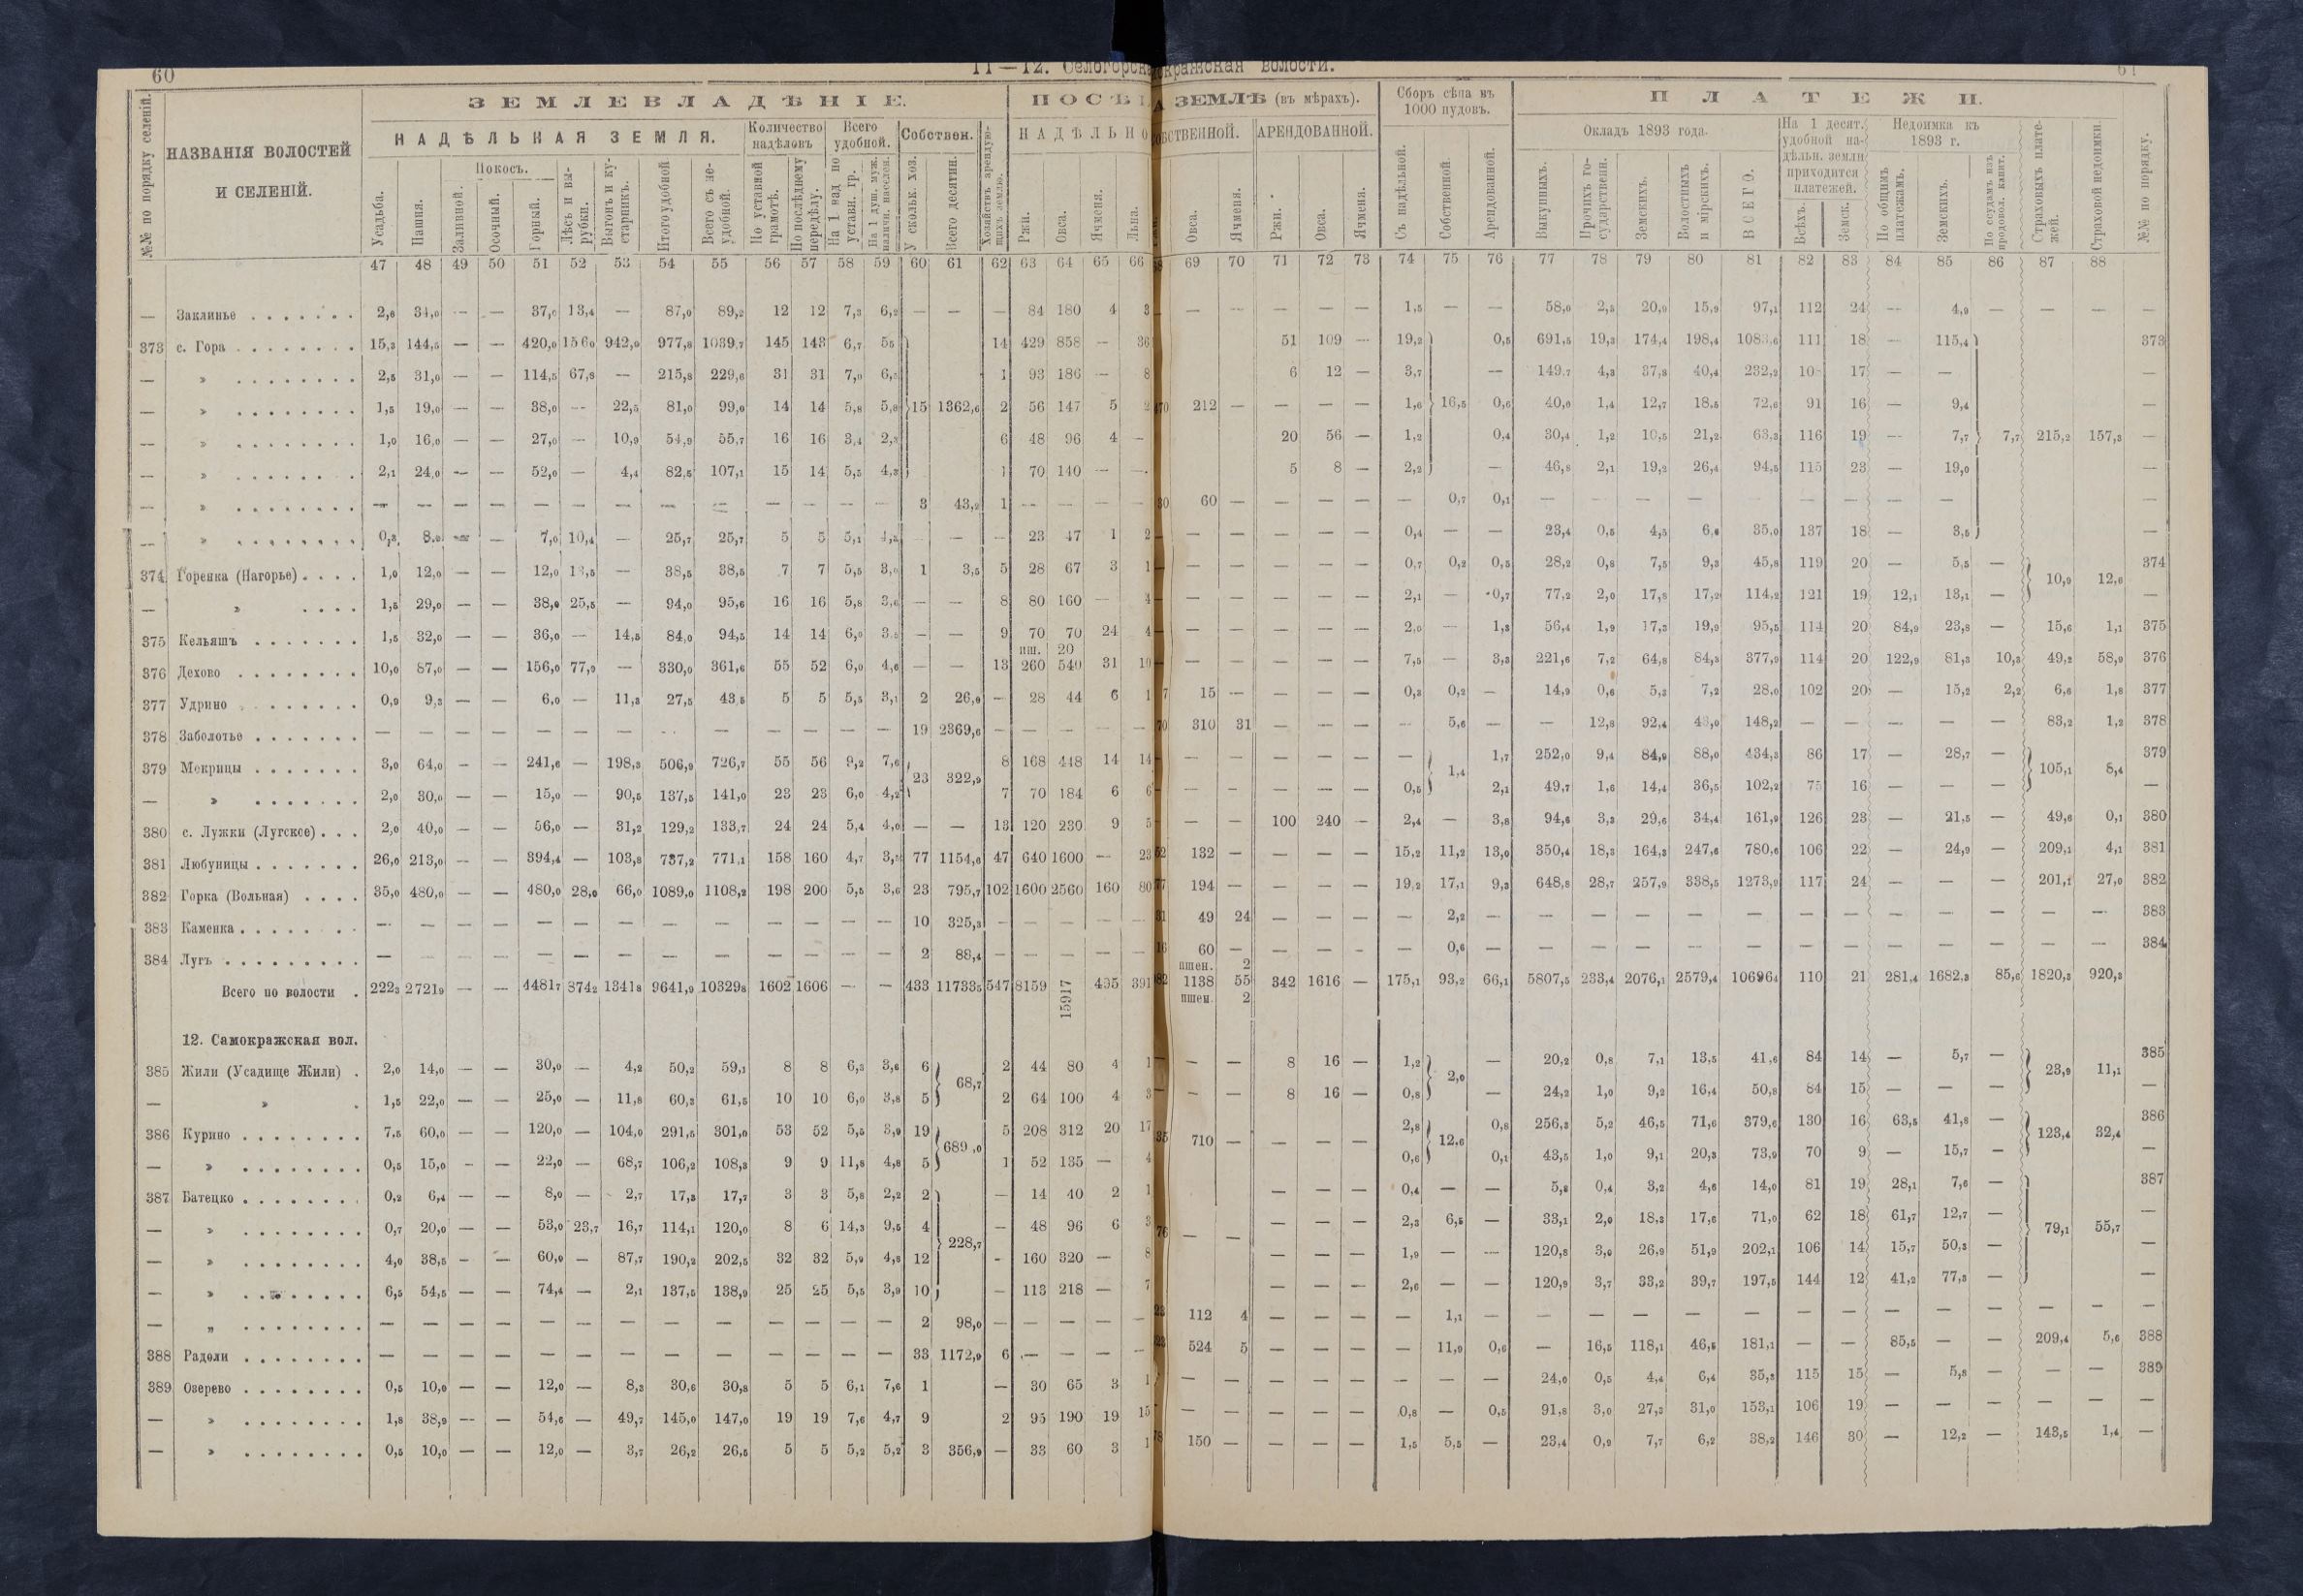 60
11—12. Белогорск кражская волости.
№№ по порядку селеній.
НАЗВАНІЯ ВОЛОСТЕЙ
И СЕЛЕНІЙ.
ЗЕМЛЕВЛАДѢНІЕ.
НАДѢЛЬНАЯ ЗЕМЛЯ.
Усадьба. Пашня. Покосъ. Заливной. Осочный. Горный. Лѣсъ и вырубки. Выгонъ и кустарникъ. Итого удобной Всего съ неудобной.
Количество надѣловъ По уставной грамотѣ. По послѣднему передѣлу.
Всего удобной. На 1 над. по уставн. гр. На 1 душ. муж. наличн. населен.
Собствен. У скольк. хоз. Всего десятин. Хозяйствъ арендующихъ землю.
НАДѢЛЬНО Ржи. Овса. Ячменя. Льна.
ЗЕМЛѢ (въ мѣрахъ).
Овса. Ячменя. АРЕНДОВАННОЙ. Ржи. Овса. Ячменя.
Сборъ сѣна въ 1000 пудовъ. Съ надѣльной. Собственной. Арендованной.
ПЛАТЕЖИ.
Окладъ 1893 года. Выкупныхъ. Прочихъ государственн. Земскихъ. Волостныхъ и мірскихъ. ВСЕГО.
На 1 десят. удобной надѣльн. земли приходится платежей. Всѣхъ. Земск.
Недоимка къ 1893 г. По общимъ платежамъ. Земскихъ. По ссудамъ изъ продовол. капит.
Страховыхъ платежей. Страховой недоимки. №№ по порядку.
47 48 49 50 51 52 53 54 55 56 57 58 59 60 61 62 63 64 65 66 69 70 71 72 73 74 75 76 77 78 79 80 81 82 83 84 85 86 87 88
— Заклинье 2,6 34,0 — — 37,0 13,4 — 87,0 89,2 12 12 7,3 6,2 — — — 84 180 4 3 — — — — — 1,5 — — 58,0 2,5 20,9 15,9 97,1 112 24 — 4,9 — — — —
373 с. Гора 15,3 144,5 — — 420,0 156,0 942,0 977,8 1039,7 145 143 6,7 5,5 14 429 858 — 36 51 109 — 19,2 0,5 691,5 19,3 174,4 198,4 1083,6 111 18 — 115,4 373
— » 2,5 31,0 — — 114,5 67,8 — 215,8 229,6 31 31 7,0 1 93 186 — 8 6 12 — 3,7 — 149,7 4,3 37,8 40,4 232,2 17 — — —
— » 1,5 19,0 — — 38,0 — 22,5 81,0 99,0 14 14 5,8 5,0 15 1362,6 2 56 147 5 2 212 — — — — 1,6 16,5 0,6 40,0 1,4 12,7 18,5 72,6 91 16 — 9,4 —
— » 1,0 16,0 — — 27,0 — 10,9 54,9 55,7 16 16 3,4 6 48 96 4 — 20 56 — 1,2 0,4 30,4 1,2 10,5 21,2 63,3 116 19 — 7,7 7,7 215,2 157,3 —
— » 2,1 24,0 — — 52,0 — 4,4 82,5 107,1 15 14 5,5 4,3 1 70 140 — — 5 8 — 2,2 — 46,8 2,1 19,2 26,4 94,5 115 23 — 19,0 —
— » — — — — — — — — — — — — — 3 43,2 1 — — — — 60 — — — — — 0,7 0,1 — — — — — — — — — —
— » 0,3 8,0 — — 7,0 10,4 — 25,7 25,7 5 5 5,1 — — — 23 47 1 2 — — — — — 0,4 — — 23,4 0,5 4,5 6,6 35,0 137 18 — 3,5 —
374 Горенка (Нагорье) 1,0 12,0 — — 12,0 13,5 — 38,5 38,5 7 7 5,5 1 3,5 5 28 67 3 1 — — — — — 0,7 0,2 0,5 28,2 0,8 7,5 9,3 45,8 119 20 — 5,5 — 10,9 12,0 374
— » 1,5 29,0 — — 38,0 25,5 — 94,0 95,6 16 16 5,8 — — 8 80 160 — 4 — — — — — 2,1 — 0,7 77,2 2,0 17,8 17,2 114,2 121 19 12,1 13,1 — —
375 Кельяшъ 1,5 32,0 — — 36,0 — 14,5 84,0 94,5 14 14 6,0 — — 9 70 70 24 4 — — — — — 2,0 — 1,3 56,4 1,9 17,3 19,9 95,5 114 20 84,9 23,8 — 15,6 1,1 375
пш. 20
376 Дехово 10,0 87,0 — — 156,0 77,9 — 330,0 361,6 55 52 6,0 4,6 — — 13 260 540 31 10 — — — — — 7,5 — 3,3 221,6 7,2 64,8 84,3 377,9 114 20 122,9 81,3 10,3 49,2 58,9 376
377 Удрино 0,9 9,3 — — 6,0 — 11,3 27,5 43,5 5 5 5,5 3,1 2 26,0 — 28 44 6 1 15 — — — — 0,3 0,2 — 14,9 0,6 5,3 7,2 28,0 102 20 — 15,2 2,2 6,6 1,8 377
378 Заболотье — — — — — — — — — — — — 19 2369,6 — — — — — 310 31 — — — — 5,6 — — 12,8 92,4 43,0 148,2 — — — — — 83,2 1,2 378
379 Мокрицы 3,0 64,0 — — 241,6 — 198,3 506,9 726,7 55 56 9,2 7,6 8 168 448 14 14 — — — — — — 1,7 252,0 9,4 84,9 88,0 434,3 86 17 — 28,7 — 379
23 322,9 1,4 105,1 8,4
— » 2,0 30,0 — — 15,0 — 90,5 137,5 141,0 23 23 6,0 4,2 7 70 184 6 6 — — — — — 0,5 2,1 49,7 1,6 14,4 36,5 102,2 75 16 — — — —
380 с. Лужки (Лугское) 2,0 40,0 — — 56,0 — 31,2 129,2 133,7 24 24 5,4 4,0 — — 13 120 230 9 5 — — 100 240 — 2,4 — 3,8 94,6 3,3 29,6 34,4 161,9 126 23 — 21,5 — 49,6 0,1 380
381 Любуницы 26,0 213,0 — — 394,4 — 103,8 737,2 771,1 158 160 4,7 77 1154,6 47 640 1600 — 23 132 — — — — 15,2 11,2 13,0 350,4 18,3 164,3 247,6 780,6 106 22 — 24,9 — 209,1 4,1 381
382 Горка (Вольная) 35,0 480,0 — — 480,0 28,0 66,0 1089,0 1108,2 198 200 5,5 3,6 23 795,7 102 1600 2560 160 80 194 — — — — 19,2 17,1 9,3 648,8 28,7 257,9 338,5 1273,9 117 24 — — — 27,0 382
383 Каменка — — — — — — — — — — — — — 10 325,3 — — — — — 49 24 — — — — 2,2 — — — — — — — — — — — — — 383
384 Лугъ — — — — — — — — — — — — 2 88,4 — — — — — 60 — — — — — 0,6 — — — — — — — — — — — — — 384
пшен. 2
Всего по волости 222,3 2721,9 — — 4481,7 874,2 1341,8 9641,9 10329,8 1602 1606 — — 433 11733,5 547 8159 15917 435 391 1138 55 342 1616 — 175,1 93,2 66,1 5807,5 233,4 2076,1 2579,4 10696,4 110 21 281,4 1682,3 85,6 1820,3 920,3
пшен. 2
12. Самокражская вол.
385 Жили (Усадище Жили) 2,0 14,0 — — 30,0 — 4,2 50,2 59,1 8 8 6,3 3,6 6 2 44 80 4 1 — — 8 16 — 1,2 — 20,2 0,8 7,1 13,5 41,6 84 14 — 5,7 — 385
68,7 2,0 23,9 11,1
— » 1,5 22,0 — — 25,0 — 11,8 60,3 61,5 10 10 6,0 3,8 5 2 64 100 4 3 — — 8 16 — 0,8 — 24,2 1,0 9,2 16,4 50,8 84 15 — — — —
386 Курино 7,5 60,0 — — 120,0 — 104,0 291,5 301,0 53 52 5,5 3,9 19 5 208 312 20 17 2,8 0,8 256,3 5,2 46,5 71,6 379,6 130 16 63,5 41,8 — 386
689,0 710 — — — — 12,6 123,4 32,4
— » 0,5 15,0 — — 22,0 — 68,7 106,2 108,3 9 9 11,8 4,8 5 1 52 135 — 4 0,6 0,1 43,5 1,0 9,1 20,3 73,9 70 9 — 15,7 — —
387 Батецко 0,2 6,4 — — 8,0 — 2,7 17,3 17,7 3 3 5,8 2,2 2 — 14 40 2 1 — — — 0,4 — — 5,8 0,4 3,2 4,6 14,0 81 19 28,1 7,6 — 387
— » 0,7 20,0 — — 53,0 23,7 16,7 114,1 120,0 8 6 14,3 9,5 4 — 48 96 6 3 — — — 2,3 6,5 — 33,1 2,0 18,3 17,6 71,0 62 18 61,7 12,7 — 79,1 55,7 —
228,7 — —
— » 4,0 38,5 — — 60,0 — 87,7 190,2 202,5 32 32 5,9 4,8 12 — 160 320 — 8 — — — 1,9 — — 120,8 3,0 26,9 51,9 202,1 106 14 15,7 50,3 — —
— » 6,5 54,5 — — 74,4 — 2,1 137,5 138,9 25 25 5,5 3,9 10 — 113 218 — 7 — — — 2,6 — — 120,9 3,7 33,2 39,7 197,5 144 12 41,2 77,3 — —
— „ — — — — — — — — — — — — — 2 98,0 — — — — — 112 4 — — — — 1,1 — — — — — — — — — — — — — —
388 Радоли — — — — — — — — — — — — — 33 1172,9 6 — — — — 524 5 — — — — 11,9 0,6 — 16,5 118,1 46,5 181,1 — — 85,5 — — 209,4 5,6 388
389 Озерево 0,5 10,0 — — 12,0 — 8,3 30,6 30,8 5 5 6,1 7,6 1 — 30 65 3 1 — — — — — — — — 24,0 0,5 4,4 6,4 35,3 115 15 — 5,8 — — — 389
— » 1,8 38,9 — — 54,6 — 49,7 145,0 147,0 19 19 7,6 4,7 9 2 95 190 19 15 — — — — — 0,8 — 0,5 91,8 3,0 27,3 31,0 153,1 106 19 — — — — — —
— » 0,5 10,0 — — 12,0 — 3,7 26,2 26,5 5 5 5,2 5,2 3 356,9 — 33 60 3 1 150 — — — — 1,5 5,5 — 23,4 0,9 7,7 6,2 38,2 146 30 — 12,2 — 143,5 1,4 —